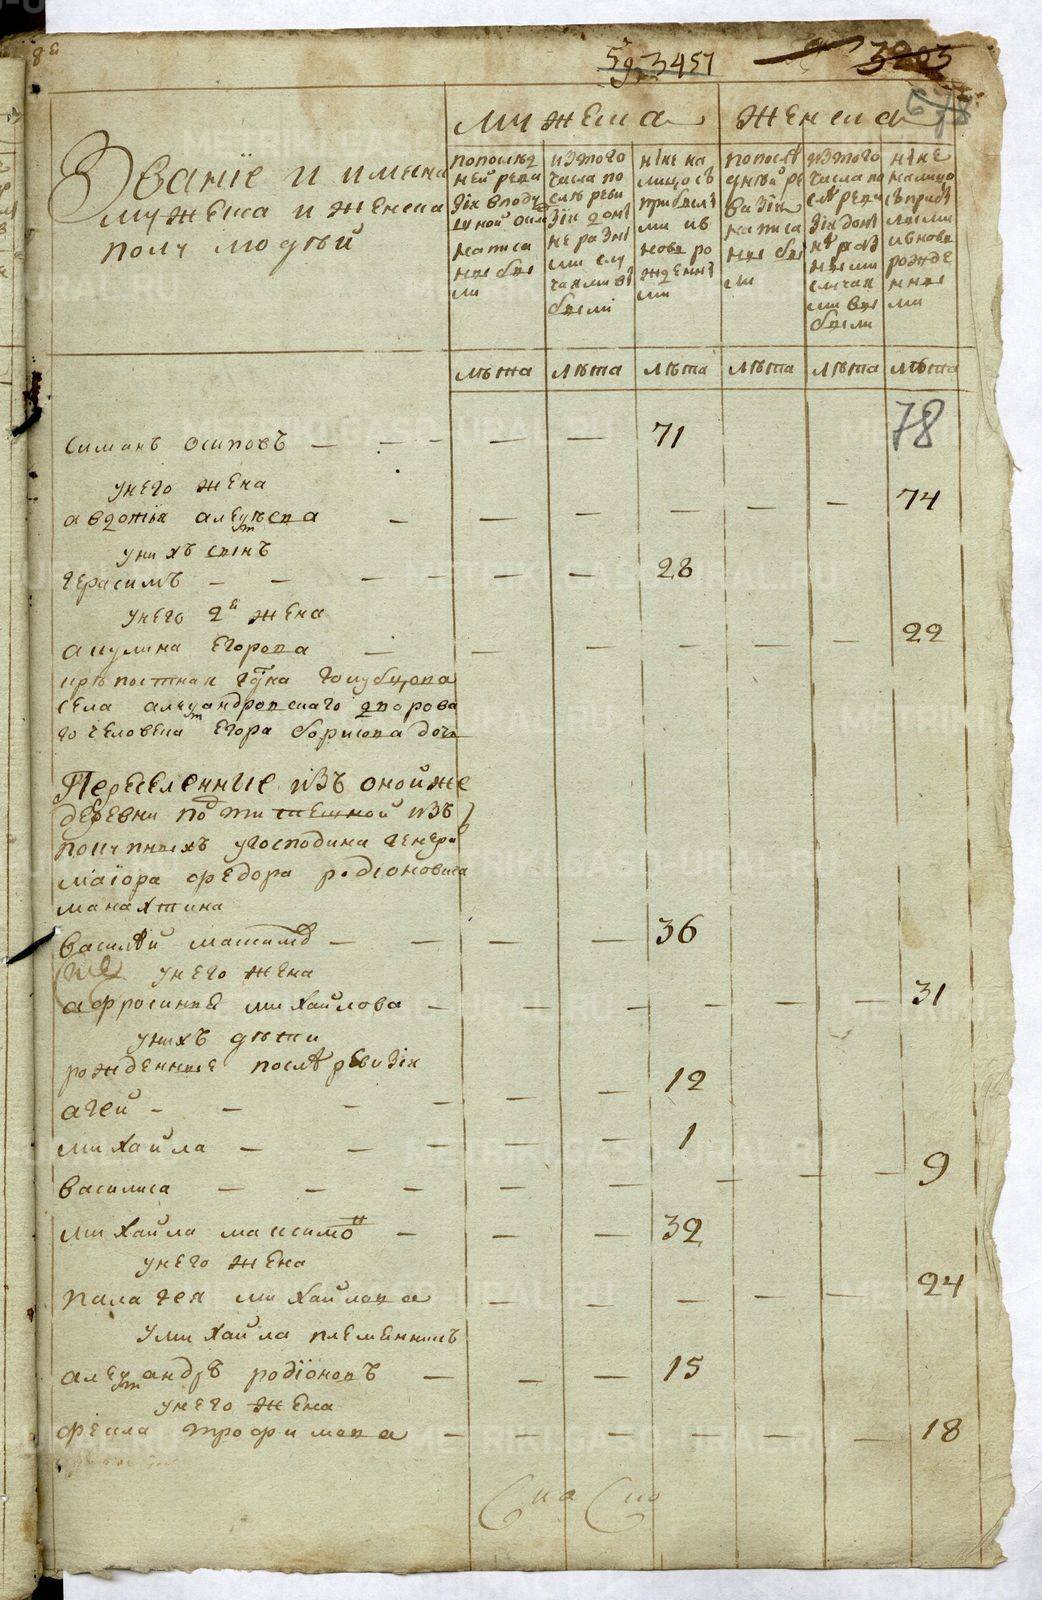 5 9 3457
3203
678
мужеска
женска
Званïе и имена
мужеска и женска
полу людѣй
попослѣд
ней реви
зiи вподу
шной окла
написа
ные бы
ли
изтого
числа по
слѣ реви
зiи доны
не разны
ми слу
чаями вы
были
ныне на
лицо съ
прибылы
ми и в
новь ро
жденны
ми
попослѣ
дней ре
визiи
написа
ные бы
ли
изтого
числа по
слѣ реви
зiи доны
нѣ раз
ными
случая
ми вы
были
ныне
налицо
съ прибы
лыми
ивновь
рожде
нные
ми
лѣта лѣта лѣта лѣта лѣта лѣта
78
симанъ осиповъ — 71
унего жена
авдотья алеѯѣева — 74
унихъ сынъ
герасимъ — 28
унего 2й жена
акулина егорова — 22
крѣпостная
села алеѯандровскаго дворова
го человека егора борисова дочь
Переселенные изъ онойже
деревни изъ
покупныхъ угосподина генерал
маïора федора родïоновича
манахтина
василѣй — 36
унего жена
афросинья михайлова — 31
унихъ дѣти
рожденные послѣ ревизiи
агей — 12
михайла — 1
василиса — 9
михайла максимо — 32
унего жена
палагея михайлова — 24
умихайла племянникъ
алеѯандръ родïоновъ — 15
унего жена
фекла трофимова — 18